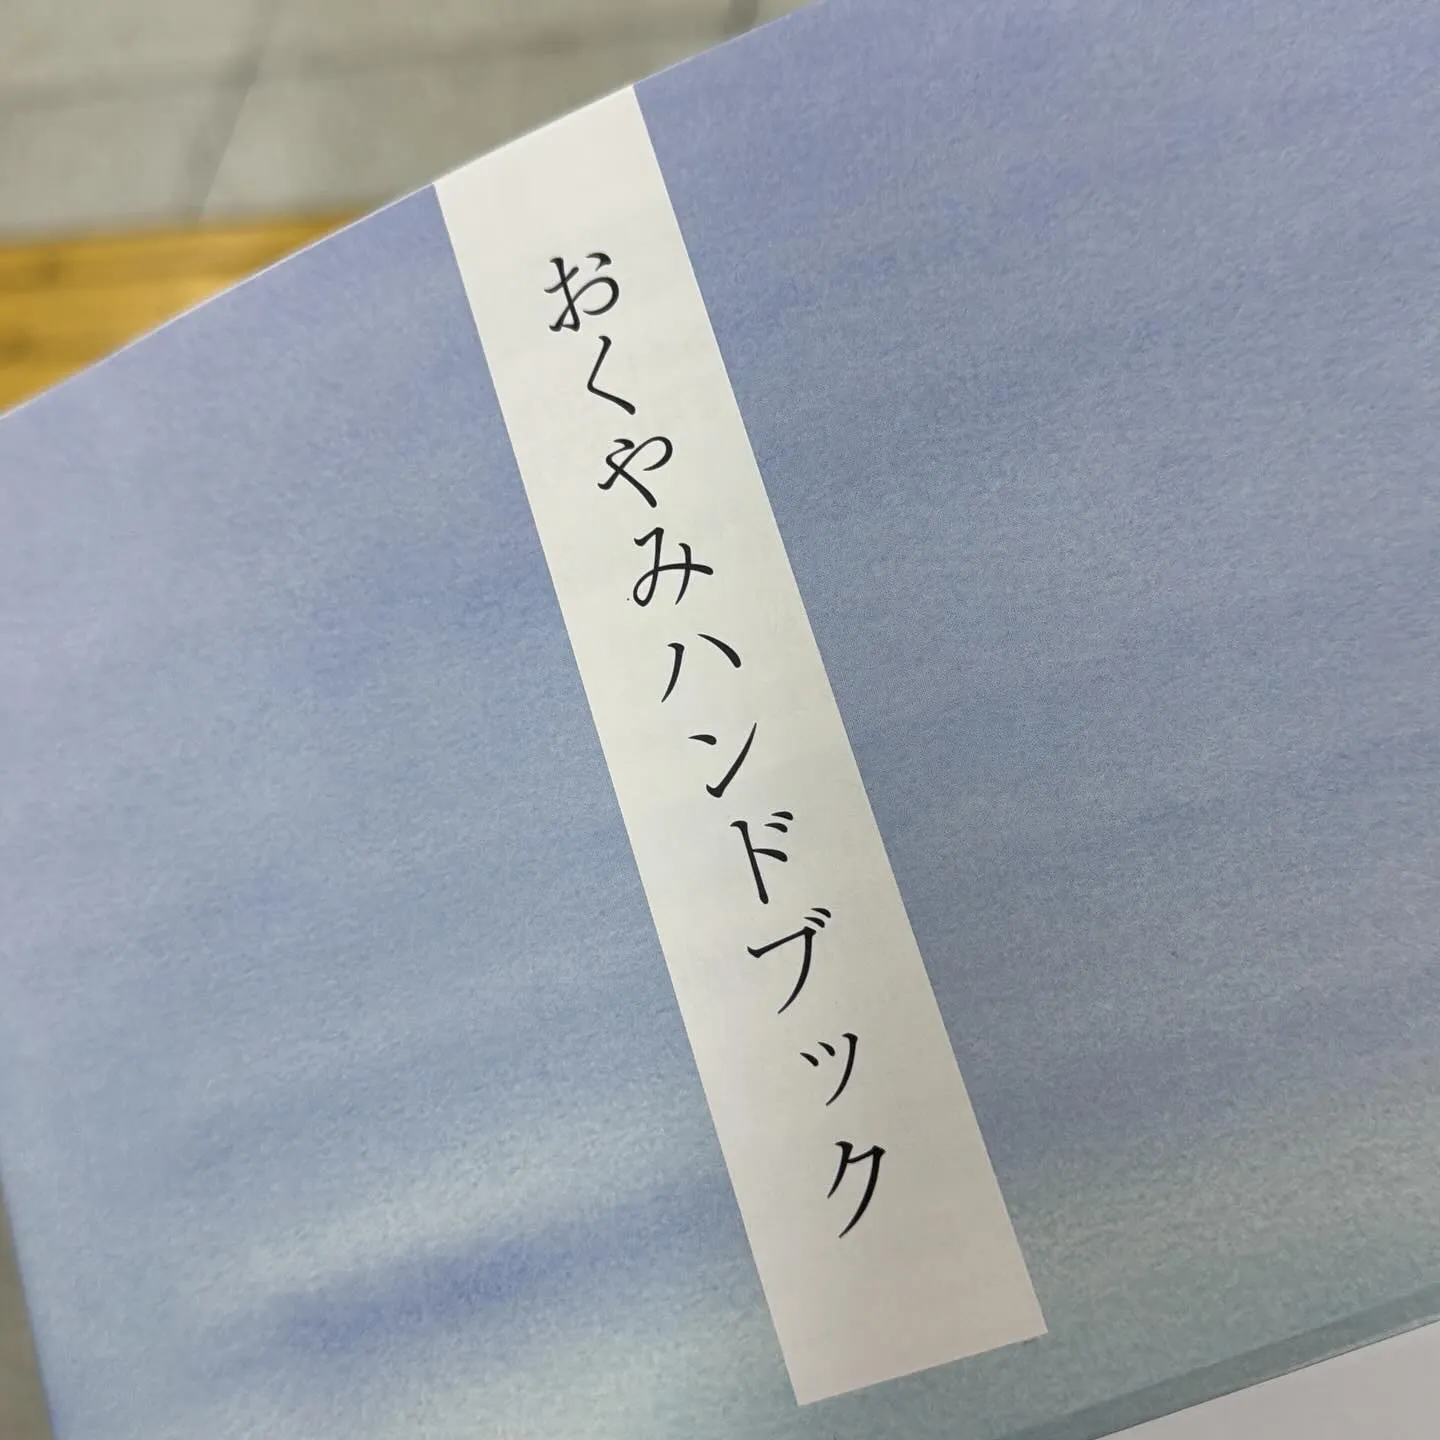 おくやみハンドブック